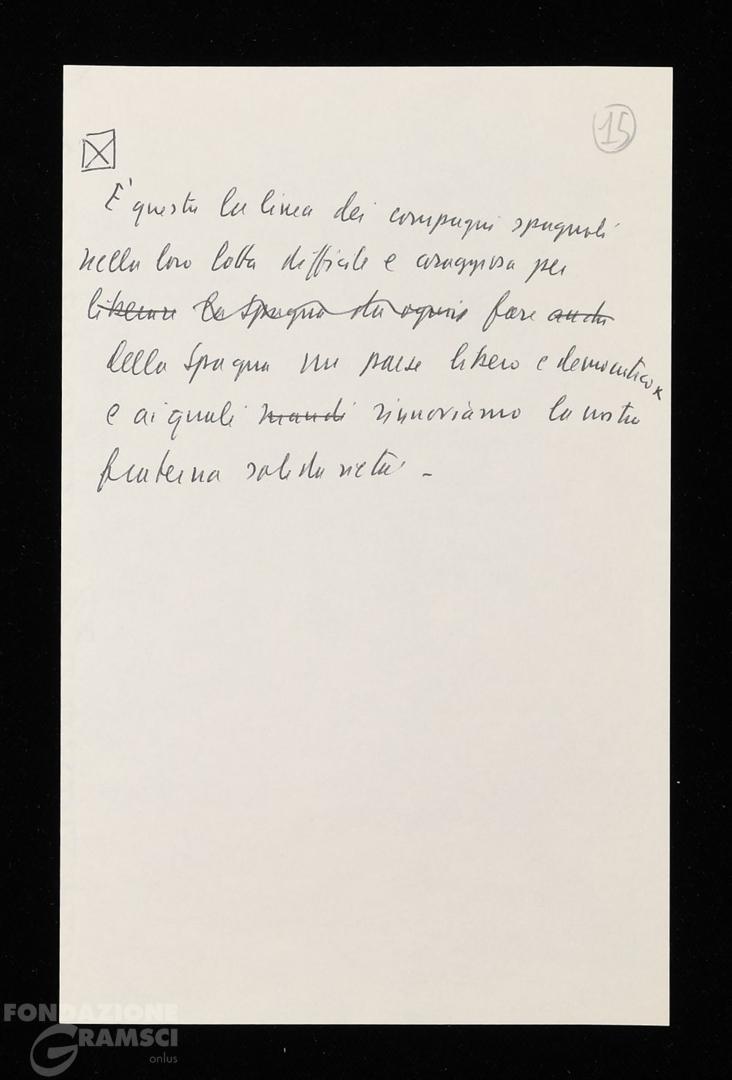 15
È questa la linea dei compagni spagnoli
nella loro lotta difficile e coraggiosa per
liberare la Spagna da ogni fare anche
della Spagna un paese libero e democratico
e ai quali mandi rinnoviamo la nostra
fraterna solidarietà -
FONDAZIONE
GRAMSCI
onlus